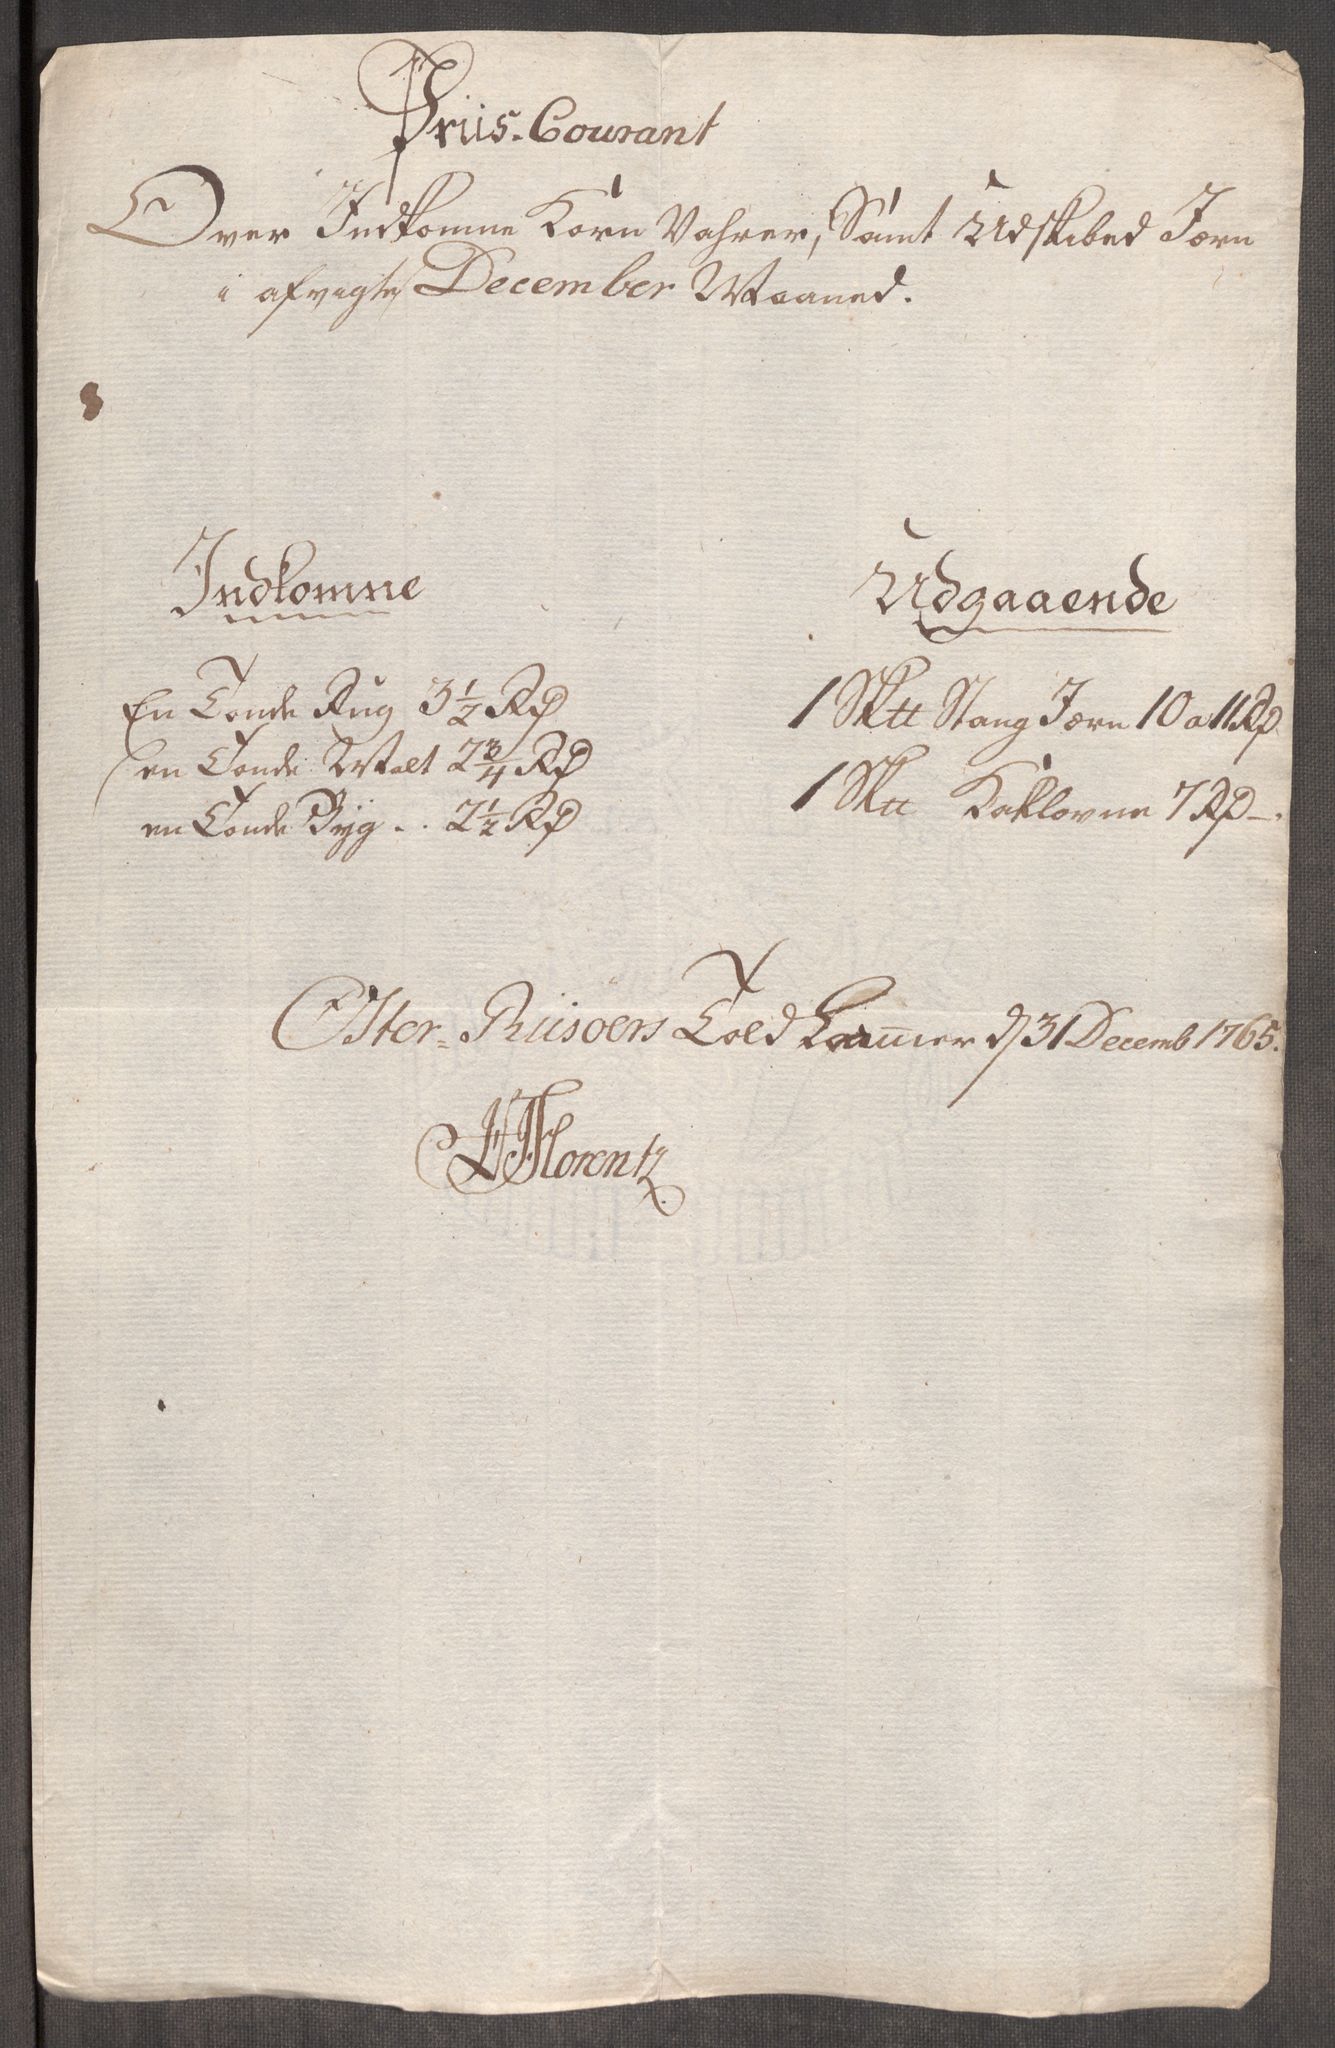 Priis-Courant
Over Indkomne Korn Vahrer, Samt Udskibed Jærn
i afvigte December Maaned.
Indkomne
En Tonde Rug 3 1/2 Rd
en Tonde Malt 2 3/4 Rd
en Tonde Byg .. 2 1/2 Rd
Udgaaende
1 Sktt Stang Jærn 10 a 11 Rd
1 Sktt Kaklovne 7 Rd -.
Oster-Riisoers Told Kammer d 31 Decemb 1765.
Florentz